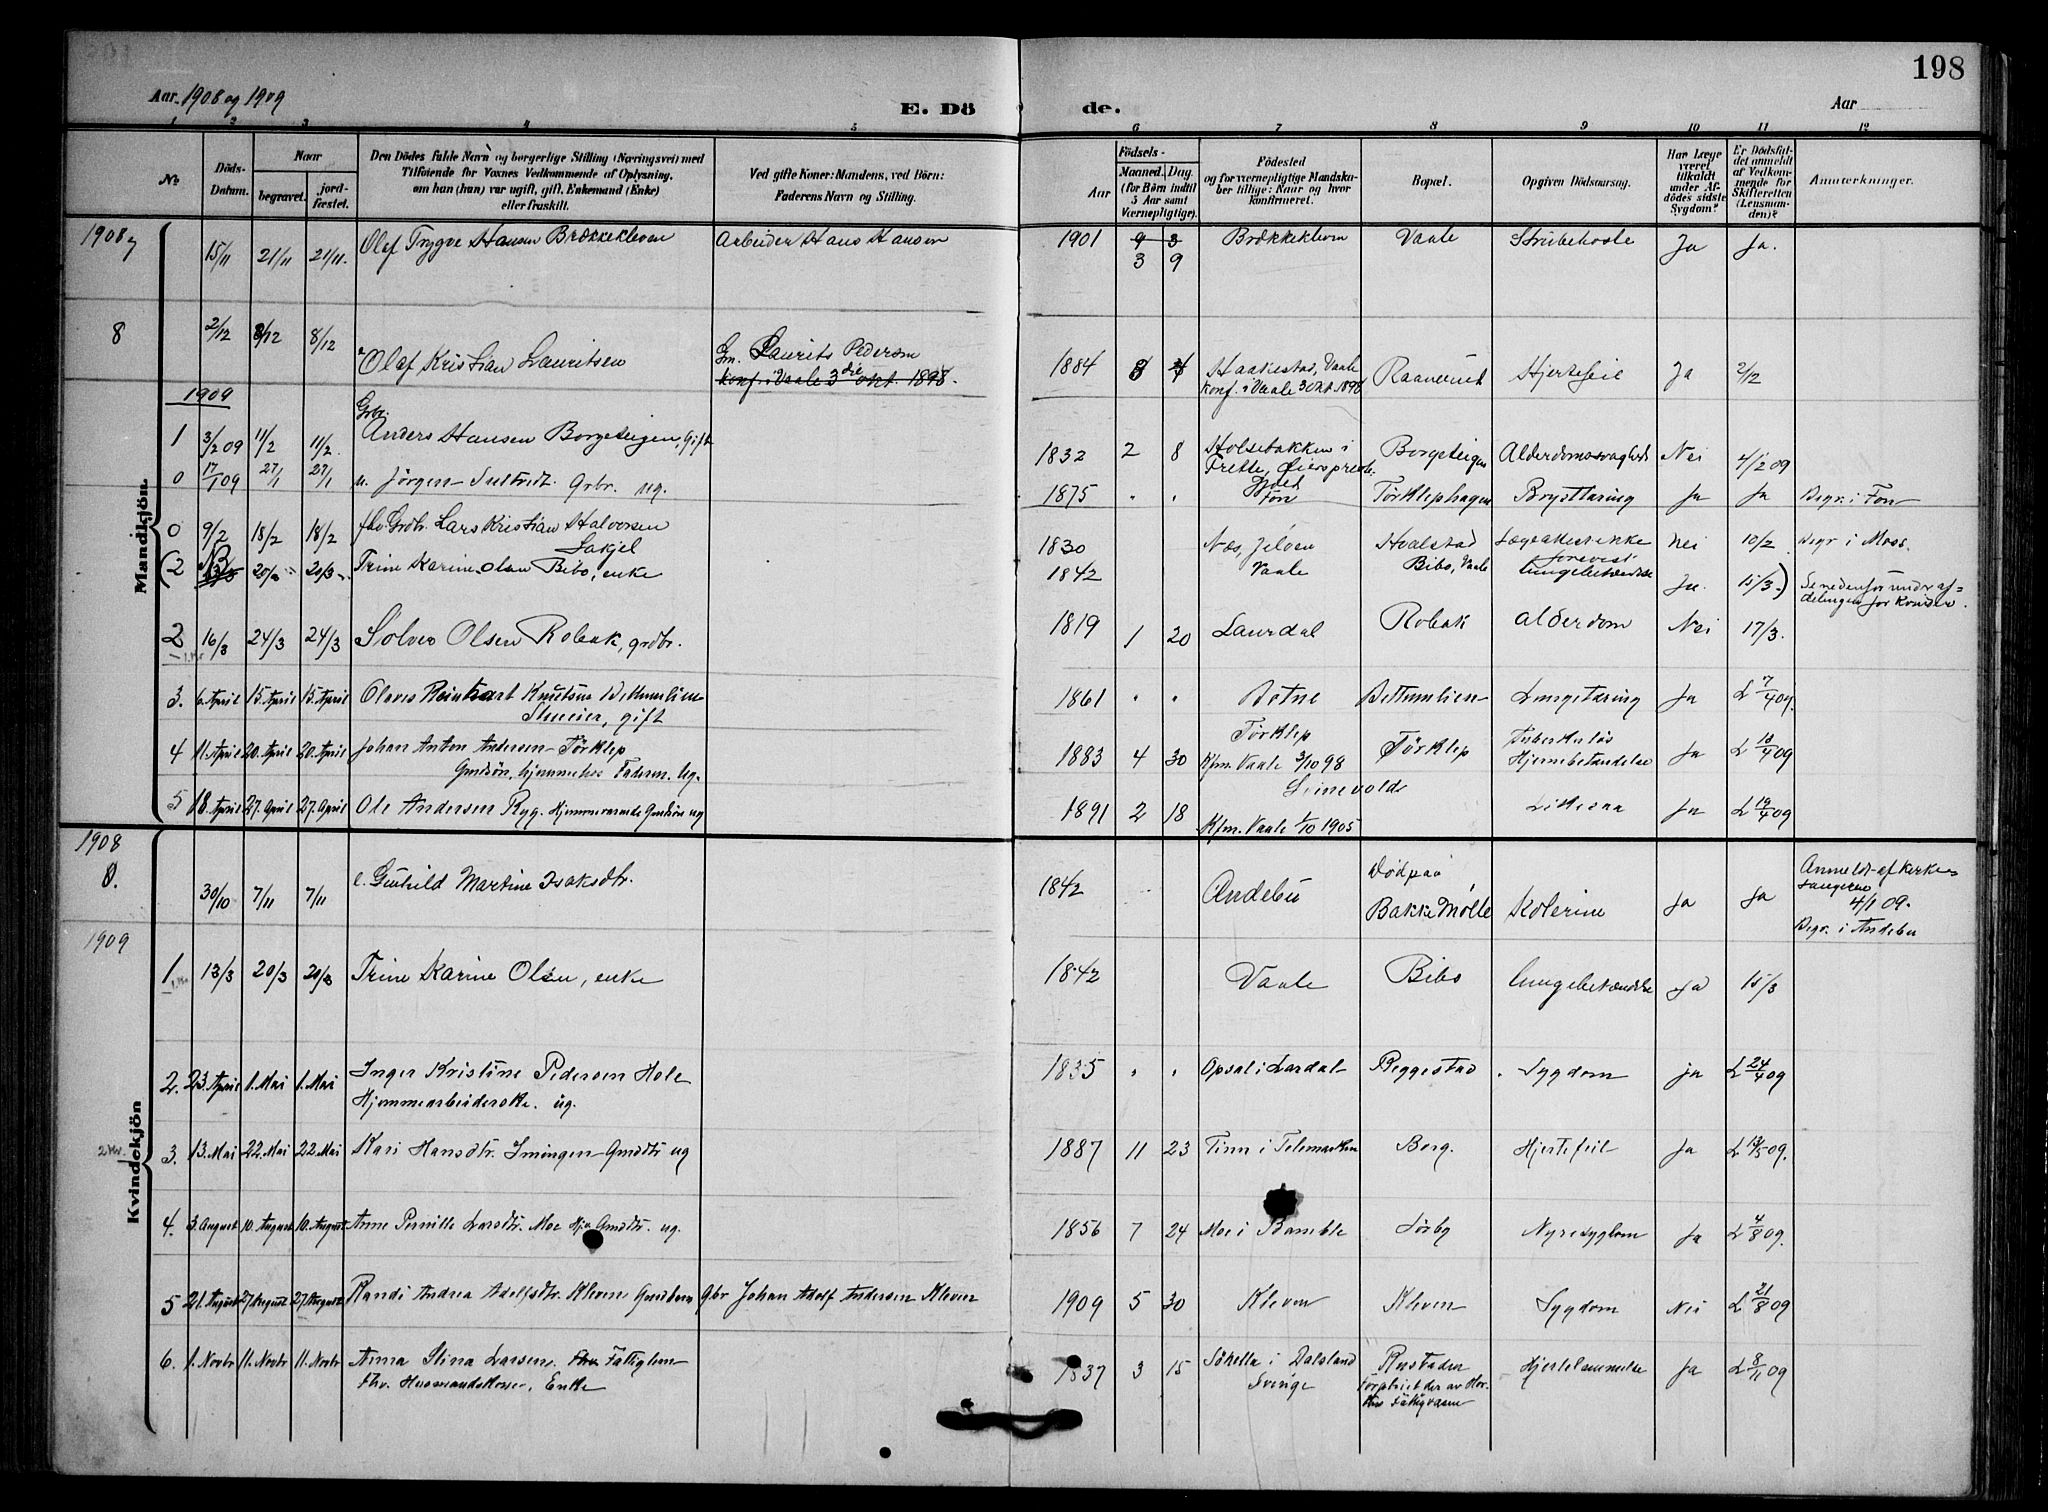 198
Aar 1908 og 1909
E. Dö de.
Aar
1 2 3 4 5 6 7 8 9 10 11 12
No Döds-Datum. Naar begravet. jordfæstet. Den Dödes fulde Navn og borgerlige Stilling (Næringsvei) med Tilföiende for Voxnes Vedkommende af Oplysning, om han (hun) var ugift, gift, Enkemand (Enke) eller fraskilt. Ved gifte Koner: Mandens, ved Börn: Faderens Navn og Stilling. Aar Födsels- Maaned. Dag. (for Börn indtil 5 Aar samt Værnepligtige). Födested og for værnepligtige Mandskaber tillige: Naar og hvor konfirmeret. Bopæl. Opgiven Dödsaarsag. Har Læge været tilkaldt under Afdödes sidste Sygdom? Er Dödsfaldet anmeldt af Vedkommende for Skifteretten (Lensmanden)? Anmærkninger.
Mandkjön.
1908 7 15/11 21/11 21/11. Olaf Trygve Hansen Brækkekleven Arbeider Hans Hansen 1901 9 3 Brækkekleven Vaale Strubehoste Ja Ja.
3 9
8 2/12 8/12 8/12 Olaf Kristian Lauritsen Gm. Laurits Pedersen 1884 8 Haakestad, Vaale Raanerud Hjertefeil Ja 2/12
konf. i Vaale 3die okt. 1898. konf. i Vaale 3 Okt. 1898
1909
Gbr.
1 3/2 09 11/2 11/2. Anders Hansen Borgeteigen, Gift 1832 2 8 Holsebakken i Borgeteigen Alderdomssvaghed Nei 4/2 09
0 17/1 09 27/1 27/1 u. Jörgen Grbr. ug. 1875 " " Fon Törklephagen Brysttæring Ja Ja Begr. i Fon
0 9/2 18/2 18/2 fhv. Grdbr. Lars Kristian Halvorsen 1830 Næs, Jelöen Hvalstad Lægeattest ikke Nei 10/2 Begr. i Moss.
(2 13/3 20/3 20/3 Trine Karine Olsen Bibo, enke 1842 Vaale Bibo, Vaale Lungebetændelse Ja. 15/3.) Se nedenfor under afdelingen for Kvinder.
2 16/3 24/3 24/3 Sølver Olsen Robak, grdbr. 1819 1 20 Laurdal Robak Alderdom Nei 17/3.
3. 6. April 15. April 15. April Olaves Reinhart Knutsen 1861 " " Botne Lungetæring Ja L 7/4 09.
gift
4 11. April 20. April 20. April Johan Anton Andersen Törklep 1883 4 30 Törklep Törklep Tuberkuløs Ja L 13/4 09
Gmdsön, hjemme hos Faderen. Ug. Kfm. Vaale 3/10 98 Hjernebetændelse
5 18. April 27. April 27. April Ole Andersen Ryg. Hjemmeværende Gmdsön ug 1891 2 18 Kfm. Vaale 1/10 1905 Ja L 19/4 09
Kvindekjön
1908
8. 30/10 7/11 7/11 e. Gunhild Martine Isaksdtr. 1842 Andebu Död paa Bakke Mölle Kolerine Ja Ja Anmeldt af Kirkesangeren 4/1 09.
Begr. i Andebu
1909
1 13/3 20/3 20/3 Trine Karine Olsen, enke 1842 Vaale Bibo Lungebetændelse Ja 15/3
2. 23. April 1. Mai 1. Mai Inger Kristine Pedersen Hole 1835 " " Opsal i Lardal Reggestad Sygdom ja L 24/4 09
Hjemmearbeiderske. ug.
2 Kv.
3. 13. Mai 22. Mai 22. Mai Kari Hansdtr. Imingen Gmdtr ug 1887 11 23 Tinn i Telemarken Borg. Hjertefeil Ja L 13/5 09.
4. 3. August 10. August 10. August Anne Pernille Larsdtr. Moe Gmdtr. ug. 1856 7 24 Moe i Bamble Sörby Nyresygdom Ja L 4/8 09.
5 21. August 27. August 27. August Randi Andrea Adolfsdtr. Kleven Gmdbarn Gbr Johan Adolf Andersen Kleven 1909 5 30 Kleven Kleven Sygdom Nei L 21/8 09
6. 1. Novbr 11. Novbr 11. Novbr Anna Stina Larsen. Fattiglem 1837 3 15 i Dalsland Rustaden Hjertelammelse Ja L 8/11 09
fhv. Husmandskone, Enke Sverige